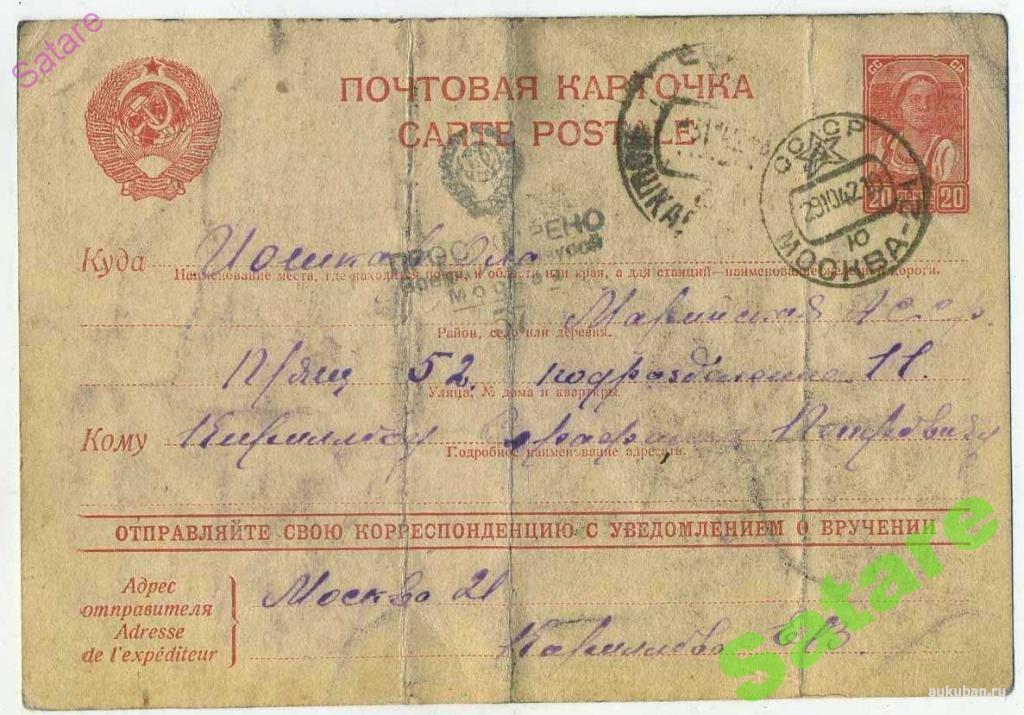 Satare
ПОЧТОВАЯ КАРТОЧКА
CARTE POSTALE
СС СР
20 20
СССР
29 10 42
МОСКВА
Ю
ПРОСМОТРЕНО
Военной Цензурой
Москва
Куда Йошкар Ола
Наименование места, где находится почта, и области или края, а для станций—наименование железной дороги.
Марийская АССР
Район, село или деревня.
П/ящ 52. подразделение 11.
Улица, № дома и квартиры.
Кому Кириллову Серафиму Петровичу
Подробное наименование адресата.
ОТПРАВЛЯЙТЕ СВОЮ КОРРЕСПОНДЕНЦИЮ С УВЕДОМЛЕНИЕМ О ВРУЧЕНИИ
Адрес
отправителя
Adresse
de l'expéditeur
Москва 21
Кириллова
Satare
aukuban.ru